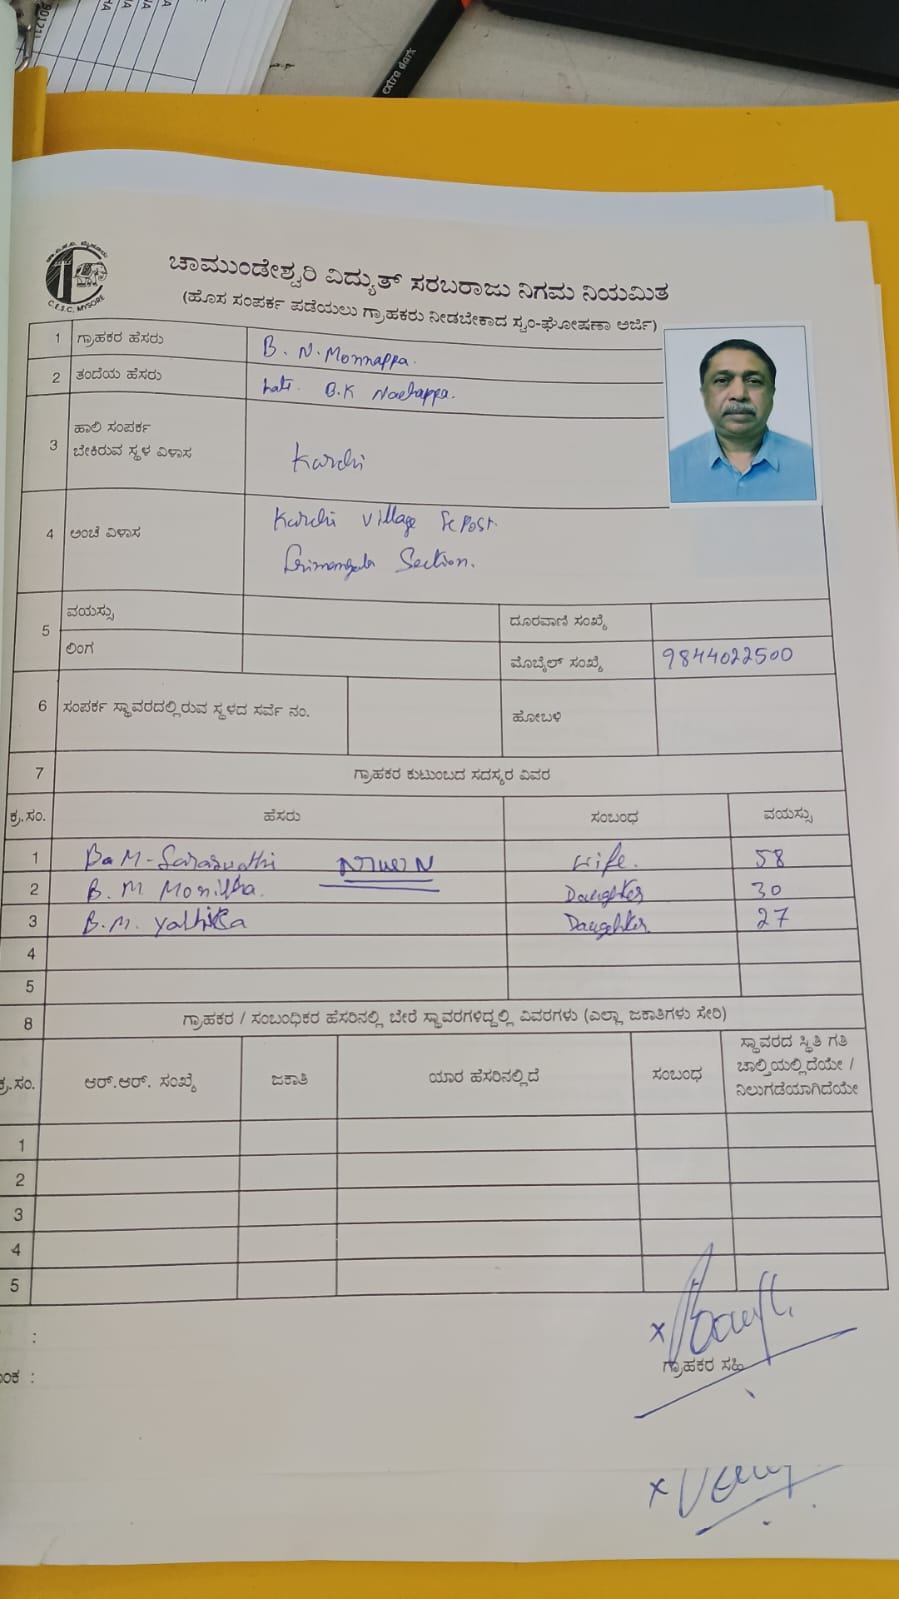 extra dark
C.E.S.C. MYSORE
ಚಾಮುಂಡೇಶ್ವರಿ ವಿದ್ಯುತ್ ಸರಬರಾಜು ನಿಗಮ ನಿಯಮಿತ
(ಹೊಸ ಸಂಪರ್ಕ ಪಡೆಯಲು ಗ್ರಾಹಕರು ನೀಡಬೇಕಾದ ಸ್ವಂ-ಘೋಷಣಾ ಅರ್ಜಿ)
1 ಗ್ರಾಹಕರ ಹೆಸರು B. N. Monnappa.
2 ತಂದೆಯ ಹೆಸರು Late. B.K Nachappa.
3 ಹಾಲಿ ಸಂಪರ್ಕ
ಬೇಕಿರುವ ಸ್ಥಳ ವಿಳಾಸ Kurchi
4 ಅಂಚೆ ವಿಳಾಸ Kurchi Village & Post.
Srimangala Section.
5 ವಯಸ್ಸು ದೂರವಾಣಿ ಸಂಖ್ಯೆ
ಲಿಂಗ ಮೊಬೈಲ್ ಸಂಖ್ಯೆ 9844022500
6 ಸಂಪರ್ಕ ಸ್ಥಾವರದಲ್ಲಿರುವ ಸ್ಥಳದ ಸರ್ವೆ ನಂ. ಹೋಬಳಿ
7 ಗ್ರಾಹಕರ ಕುಟುಂಬದ ಸದಸ್ಯರ ವಿವರ
ಕ್ರ.ಸಂ. ಹೆಸರು ಸಂಬಂಧ ವಯಸ್ಸು
1 M-Saraswathi Wife. 58
2 B. M Monisha. Daughter 30
3 B.M. Daughter 27
4
5
8 ಗ್ರಾಹಕರ / ಸಂಬಂಧಿಕರ ಹೆಸರಿನಲ್ಲಿ ಬೇರೆ ಸ್ಥಾವರಗಳಿದ್ದಲ್ಲಿ ವಿವರಗಳು (ಎಲ್ಲಾ ಜಕಾತಿಗಳು ಸೇರಿ)
ಕ್ರ.ಸಂ. ಆರ್.ಆರ್. ಸಂಖ್ಯೆ ಜಕಾತಿ ಯಾರ ಹೆಸರಿನಲ್ಲಿದೆ ಸಂಬಂಧ ಸ್ಥಾವರದ ಸ್ಥಿತಿ ಗತಿ
ಚಾಲ್ತಿಯಲ್ಲಿದೆಯೇ /
ನಿಲುಗಡೆಯಾಗಿದೆಯೇ
1
2
3
4
5
:
x
ಗ್ರಾಹಕರ ಸಹಿ
ಂಕ :
x